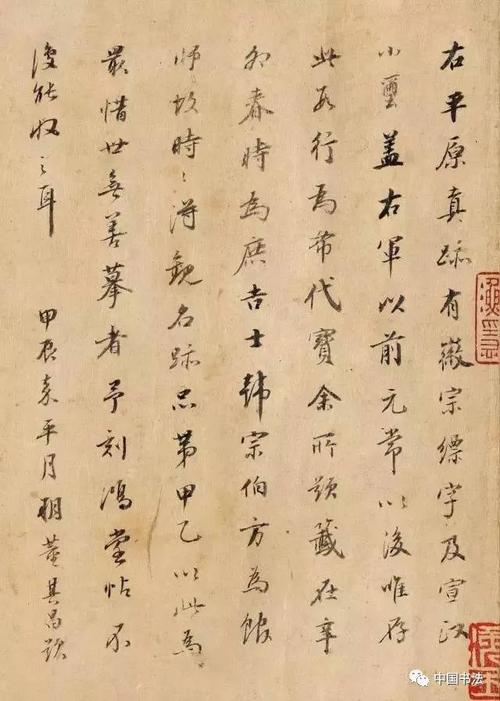 右平原真跡有徽宗縹字及宣和
小璽盖右軍以前元常以後唯存
此數行為希代寶余所題籤在辛
卯春時為庶吉士韓宗伯方為館
師故時時得觀名跡品第甲乙以此為
最惜世無善摹者予刻鴻堂帖不
復能收之耳 甲辰嘉平月朔董其昌題
中国书法